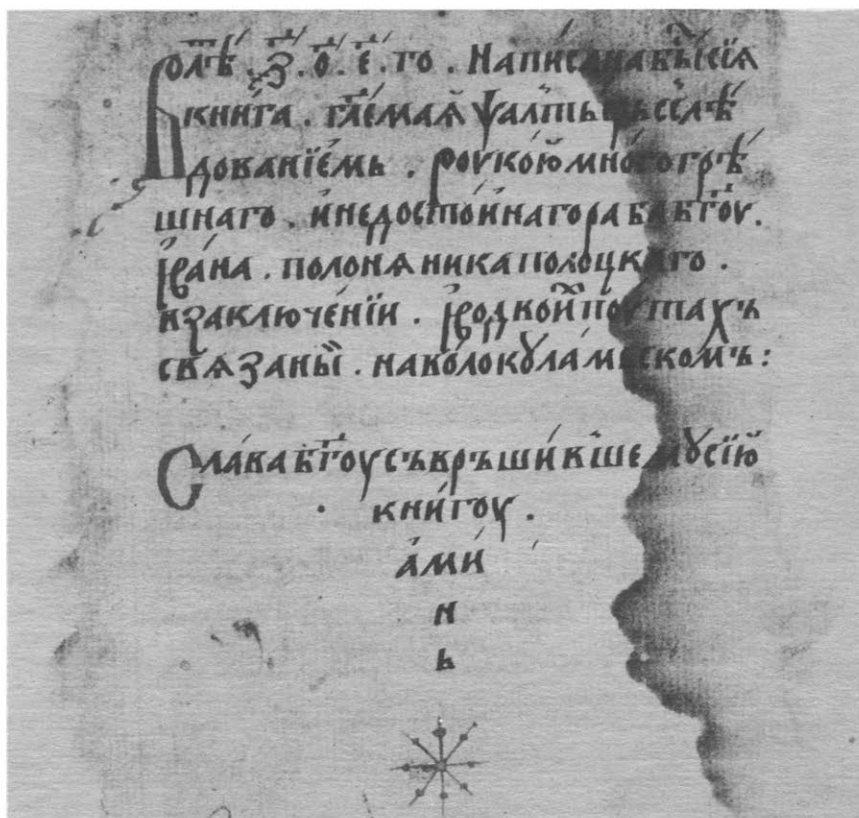 В лѣ҃ . ҂з҃ . о҃ . е҃ . го . написана бы́ сїѧ
кни́га . гл҃емаѧ ѱалты́рь с слѣ́
дованїе́мь . роуко́ю мно́го грѣ́
шнаго . и҆ недосто́инаго раба бг҃оу .
і҆ва́на . полонѧника полоцкаго .
и҆ заключе́нїи . і҆ в одкои поутахъ
свѧзаны́й . на во́локꙋла́мьскомъ :
Сла́ва бг҃оу съврьши́вшемꙋ сїю̀
кни́гоу .
а҆ми́
н
ь